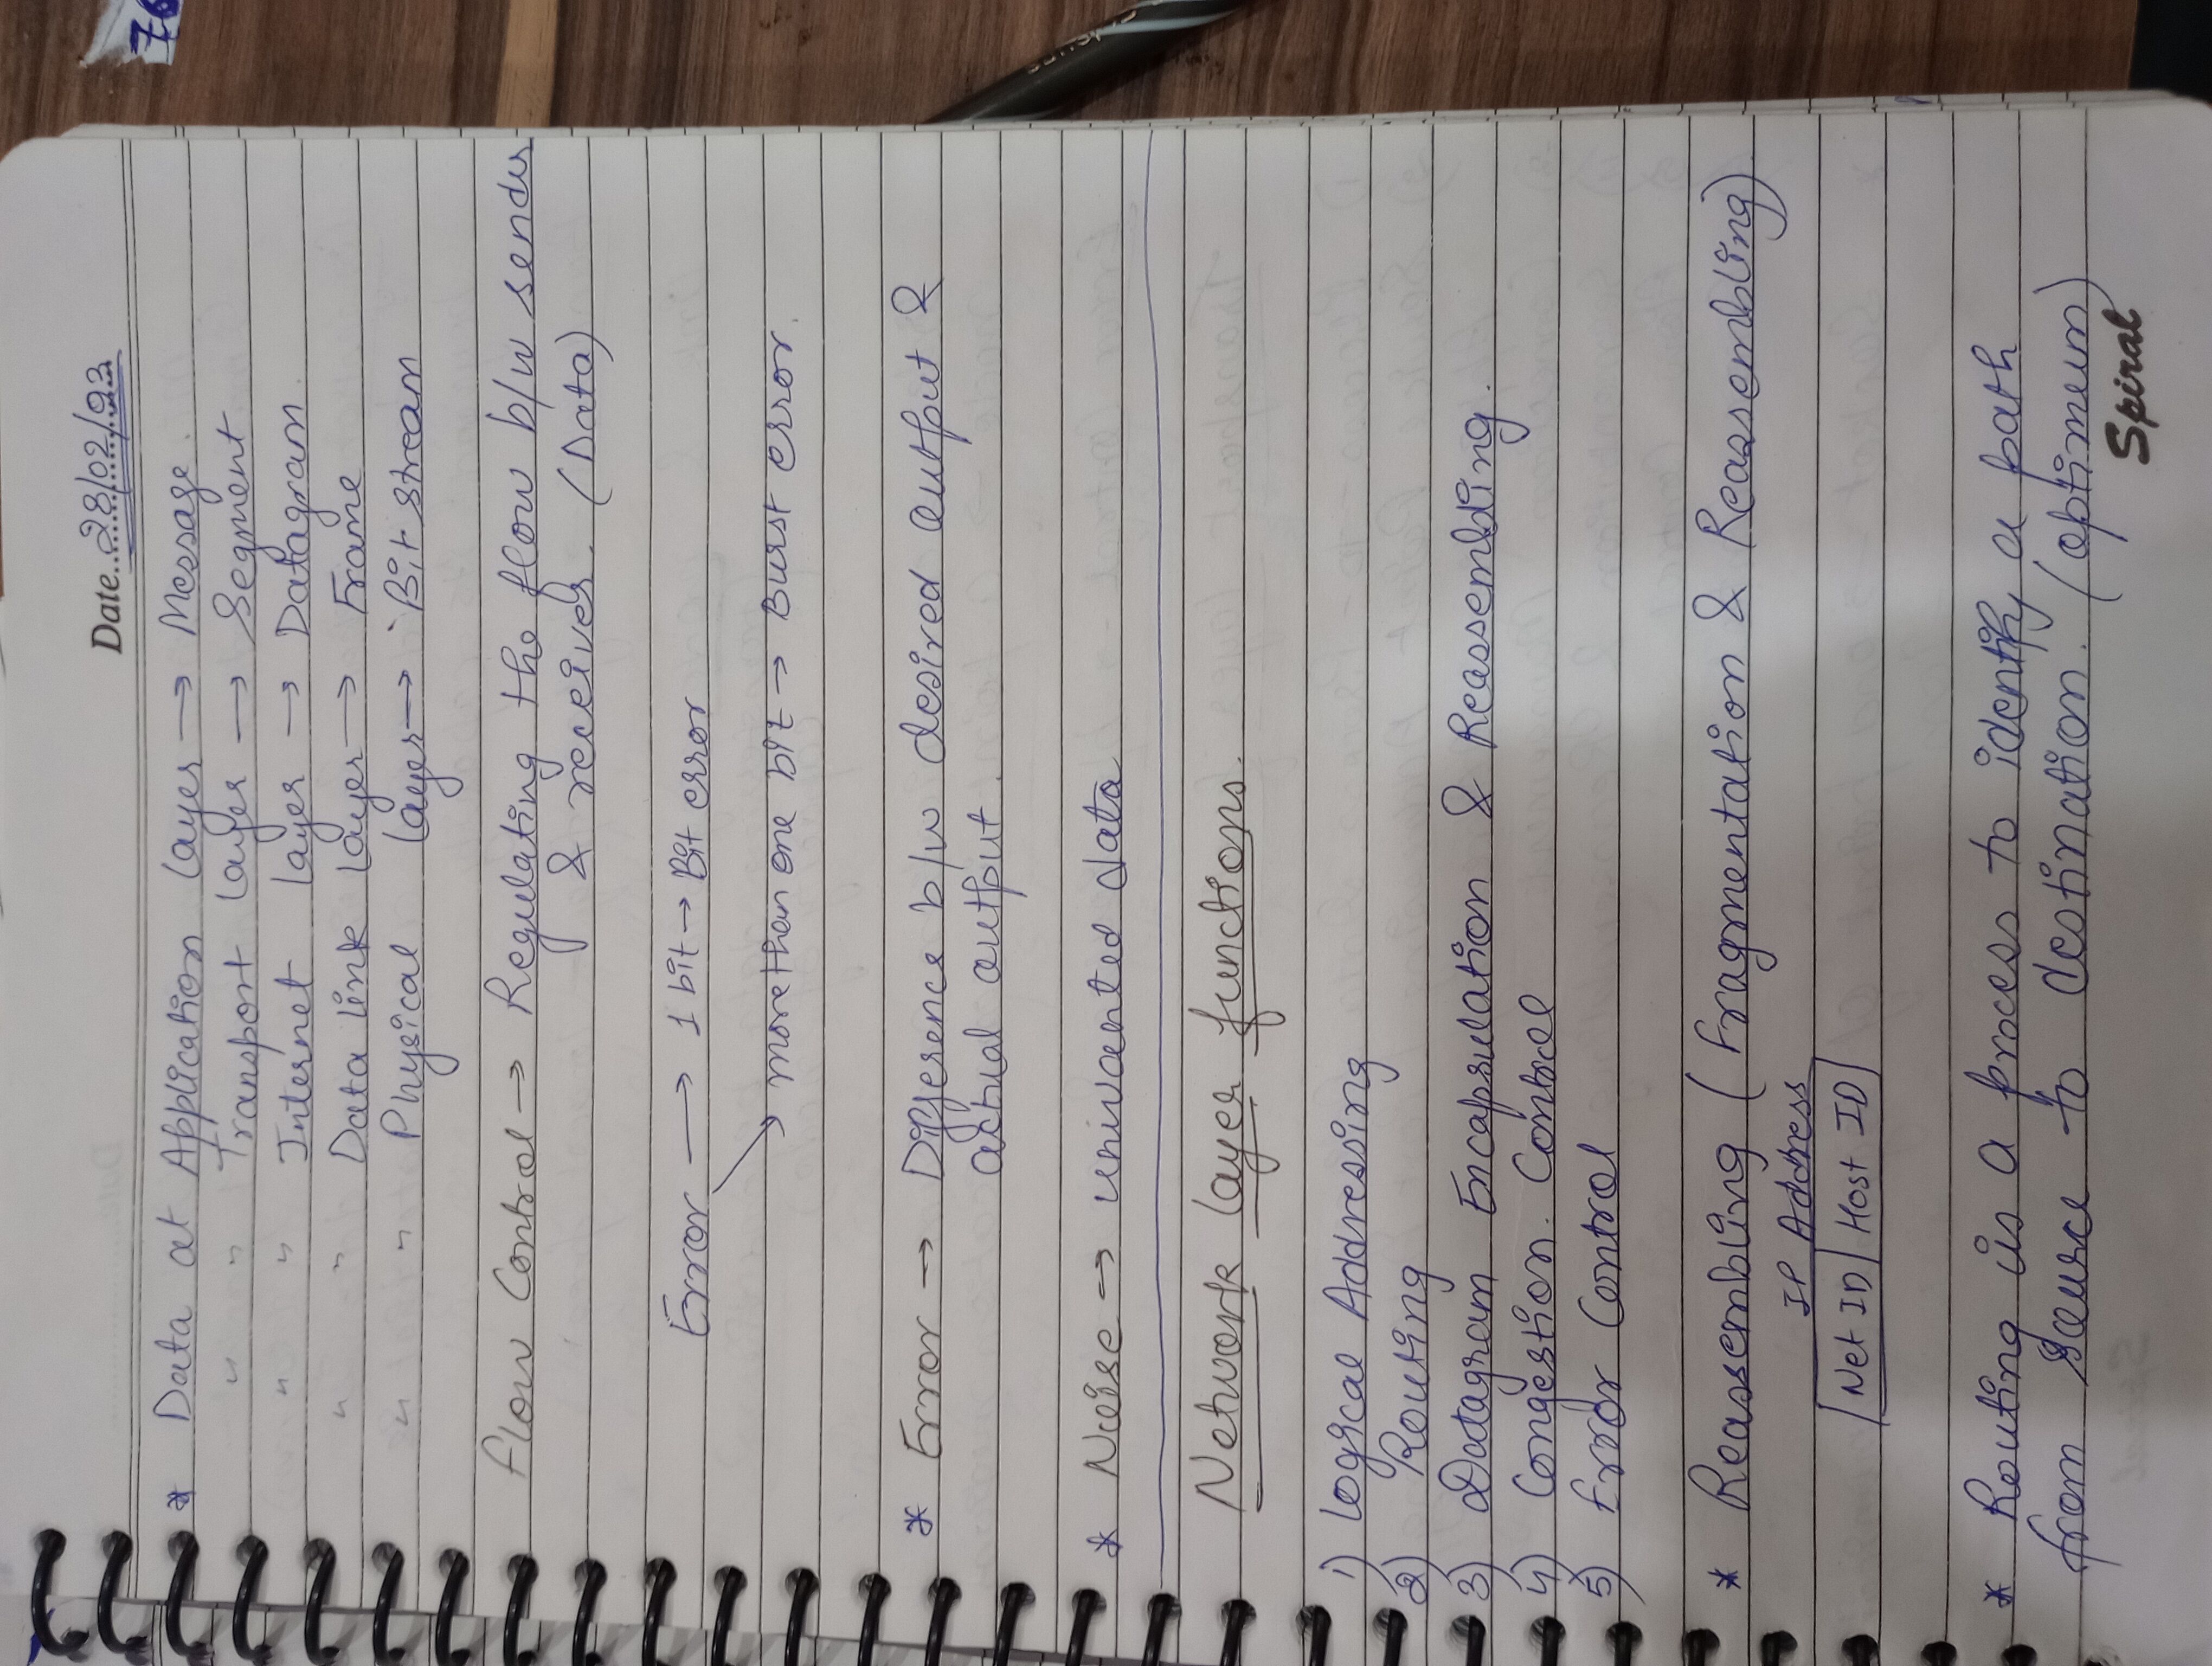 Date 28/02/23
* Data at Application layer → Message.
" " Transport layer → Segment
" " Internet layer → Datagram.
" " Data link layer → Frame
" " Physical layer → Bit stream
flow Control → Regulating the flow b/w sender
& receiver. (Data)
Error → 1 bit → Bit error
→ more than one bit → Burst error.
* Error → Difference b/w desired output &
actual output.
* Noise → unwanted data
Network layer functions.
1) Logical Addressing
2) Routing
3) Datagram Encapsulation & Reassembling.
4) Congestion. Control
5) Error Control
* Reassembling (fragmentation & Reassembling)
IP Address
Net ID | Host ID
* Routing is a process to identify a path
from source to destination. (optimum)
Spiral